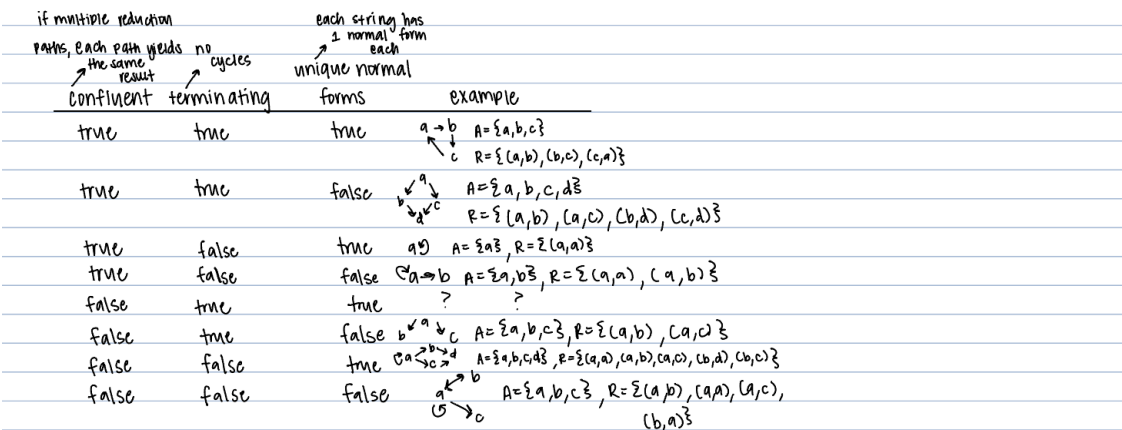 if multiple reduction
paths, each path yields
the same
result
no
cycles
each string has
1 normal form
each
unique normal
confluent terminating forms example
true true true a → b A={a,b,c}
c R={(a,b),(b,c),(c,a)}
true true false a b c d A={a,b,c,d}
R={(a,b),(a,c),(b,d),(c,d)}
true false true a A={a}, R={(a,a)}
true false false a→b A={a,b}, R={(a,a), (a,b)}
false true true ? ?
false true false b a c A={a,b,c}, R={(a,b), (a,c)}
false false true a b d c A={a,b,c,d}, R={(a,a),(a,b),(a,c),(b,d),(b,c)}
false false false a b c A={a,b,c}, R={(a,b),(a,a),(a,c),
(b,a)}